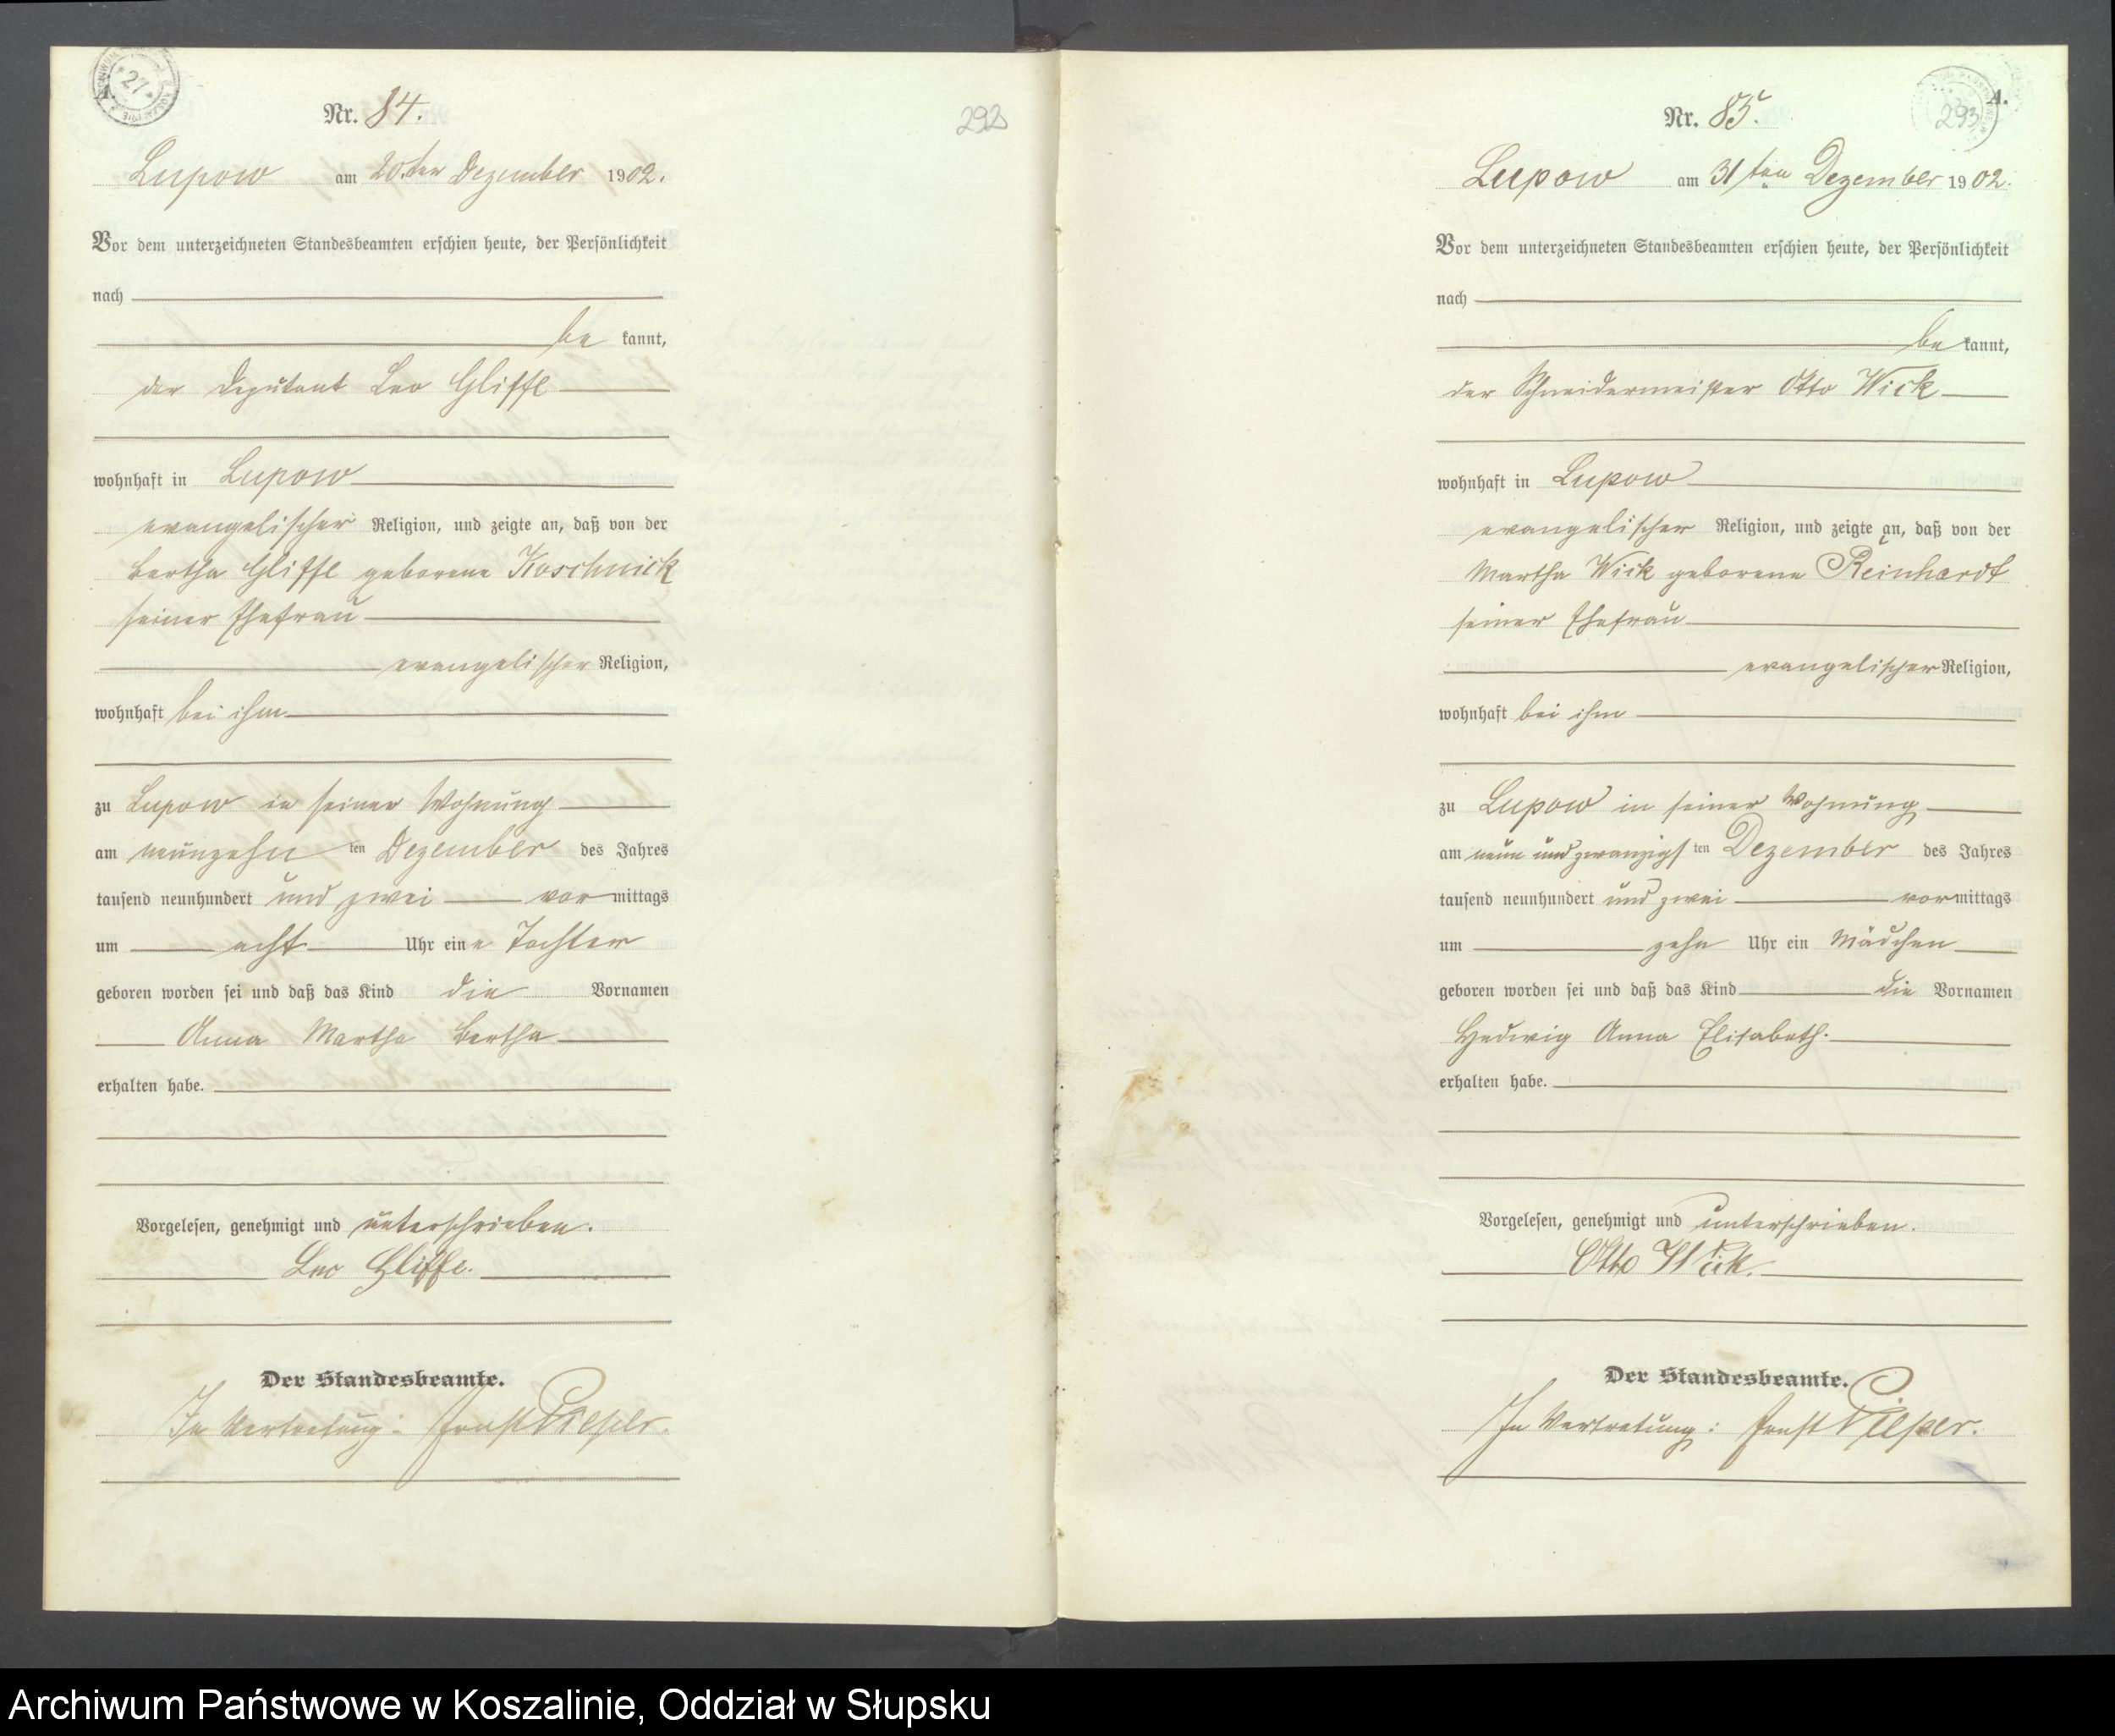 A.
27
Nr. 84.
292
Lupow am 20.ten Dezember 1902.
Vor dem unterzeichneten Standesbeamten erschien heute, der Persönlichkeit
nach
be kannt,
der Deputant Leo Gliffe
wohnhaft in Lupow
evangelischer Religion, und zeigte an, daß von der
Bertha Gliffe geborene Koschnick
seiner Ehefrau
evangelischer Religion,
wohnhaft bei ihm
zu Lupow in seiner Wohnung
am neunzehn ten Dezember des Jahres
tausend neunhundert und zwei vor mittags
um acht Uhr eine Tochter
geboren worden sei und daß das Kind die Vornamen
Anna Martha Bertha
erhalten habe.
Vorgelesen, genehmigt und unterschrieben.
Leo Gliffe.
Der Standesbeamte.
In Vertretung: Ernst Pieper.
A.
293
Nr. 85.
Lupow am 31ten Dezember 1902.
Vor dem unterzeichneten Standesbeamten erschien heute, der Persönlichkeit
nach
be kannt,
der Schneidermeister Otto Wick
wohnhaft in Lupow
evangelischer Religion, und zeigte an, daß von der
Martha Wick geborene Reinhardt
seiner Ehefrau
evangelischer Religion,
wohnhaft bei ihm
zu Lupow in seiner Wohnung
am neun und zwanzigs ten Dezember des Jahres
tausend neunhundert und zwei vormittags
um zehn Uhr ein Mädchen
geboren worden sei und daß das Kind die Vornamen
Hedwig Anna Elisabeth.
erhalten habe.
Vorgelesen, genehmigt und unterschrieben.
Otto Wick.
Der Standesbeamte.
In Vertretung: Ernst Pieper.
Archiwum Państwowe w Koszalinie, Oddział w Słupsku